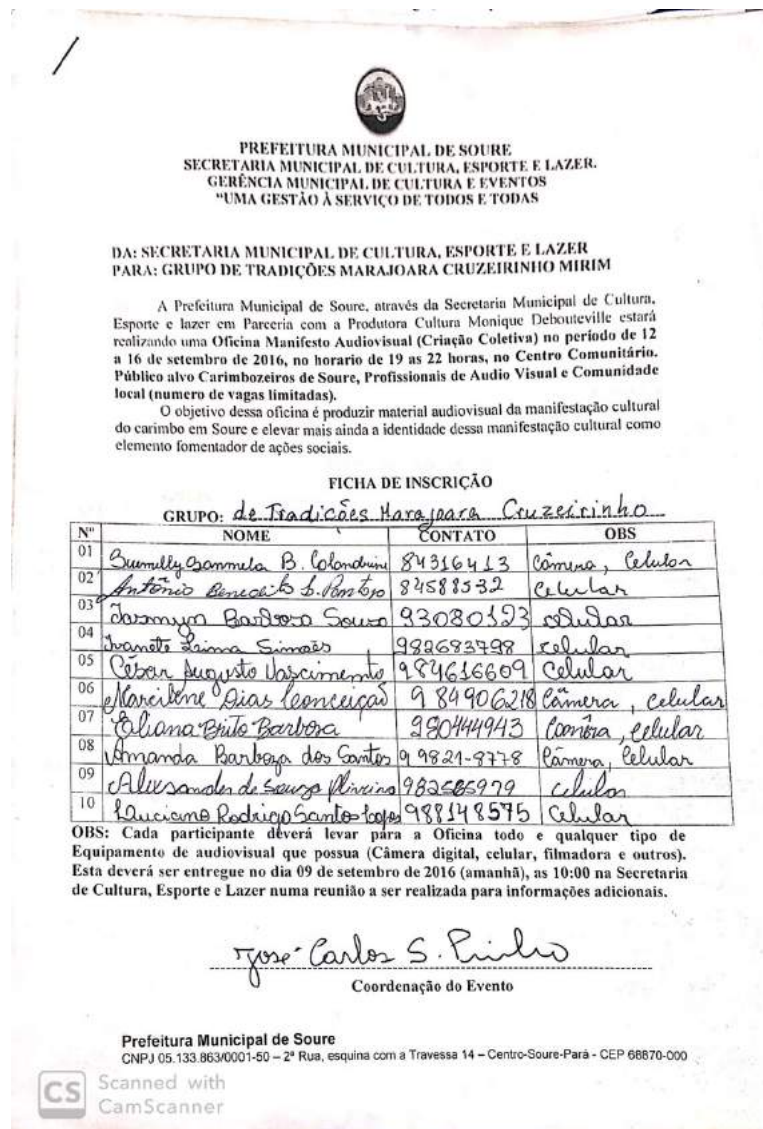 PREFEITURA MUNICIPAL DE SOURE
SECRETARIA MUNICIPAL DE CULTURA, ESPORTE E LAZER.
GERÊNCIA MUNICIPAL DE CULTURA E EVENTOS
"UMA GESTÃO À SERVIÇO DE TODOS E TODAS
DA: SECRETARIA MUNICIPAL DE CULTURA, ESPORTE E LAZER
PARA: GRUPO DE TRADIÇÕES MARAJOARA CRUZEIRINHO MIRIM
A Prefeitura Municipal de Soure, através da Secretaria Municipal de Cultura,
Esporte e lazer em Parceria com a Produtora Cultura Monique Debouteville estará
realizando uma Oficina Manifesto Audiovisual (Criação Coletiva) no período de 12
a 16 de setembro de 2016, no horario de 19 as 22 horas, no Centro Comunitário.
Público alvo Carimbozeiros de Soure, Profissionais de Audio Visual e Comunidade
local (numero de vagas limitadas).
O objetivo dessa oficina é produzir material audiovisual da manifestação cultural
do carimbo em Soure e elevar mais ainda a identidade dessa manifestação cultural como
elemento fomentador de ações sociais.
FICHA DE INSCRIÇÃO
GRUPO: de Tradições Marajoara Cruzeirinho
Nº NOME CONTATO OBS
01 B. 84316413 Câmera, Celular
02 Antônio Benedito S. Pantoja 84588532 Celular
03 Iasmyn Barbosa Souza 93080123 celular
04 Ivanete Simões 982683798 celular
05 César Augusto Nascimento 984616609 Celular
06 Marcilene Dias Conceição 984906218 Câmera, celular
07 Eliana Brito Barbosa 980444943 Camêra, celular
08 Amanda Barboza dos Santos 9 9821-8778 Câmera, Celular
09 Alexsander de Souza Oliveira 982585979 celular
10 Luciano Rodrigo Santos Lopes 988148575 Celular
OBS: Cada participante deverá levar para a Oficina todo e qualquer tipo de
Equipamento de audiovisual que possua (Câmera digital, celular, filmadora e outros).
Esta deverá ser entregue no dia 09 de setembro de 2016 (amanhã), as 10:00 na Secretaria
de Cultura, Esporte e Lazer numa reunião a ser realizada para informações adicionais.
José Carlos S. Pinho
Coordenação do Evento
Prefeitura Municipal de Soure
CNPJ 05.133.863/0001-50 – 2ª Rua, esquina com a Travessa 14 – Centro-Soure-Pará - CEP 68870-000
CS Scanned with
CamScanner